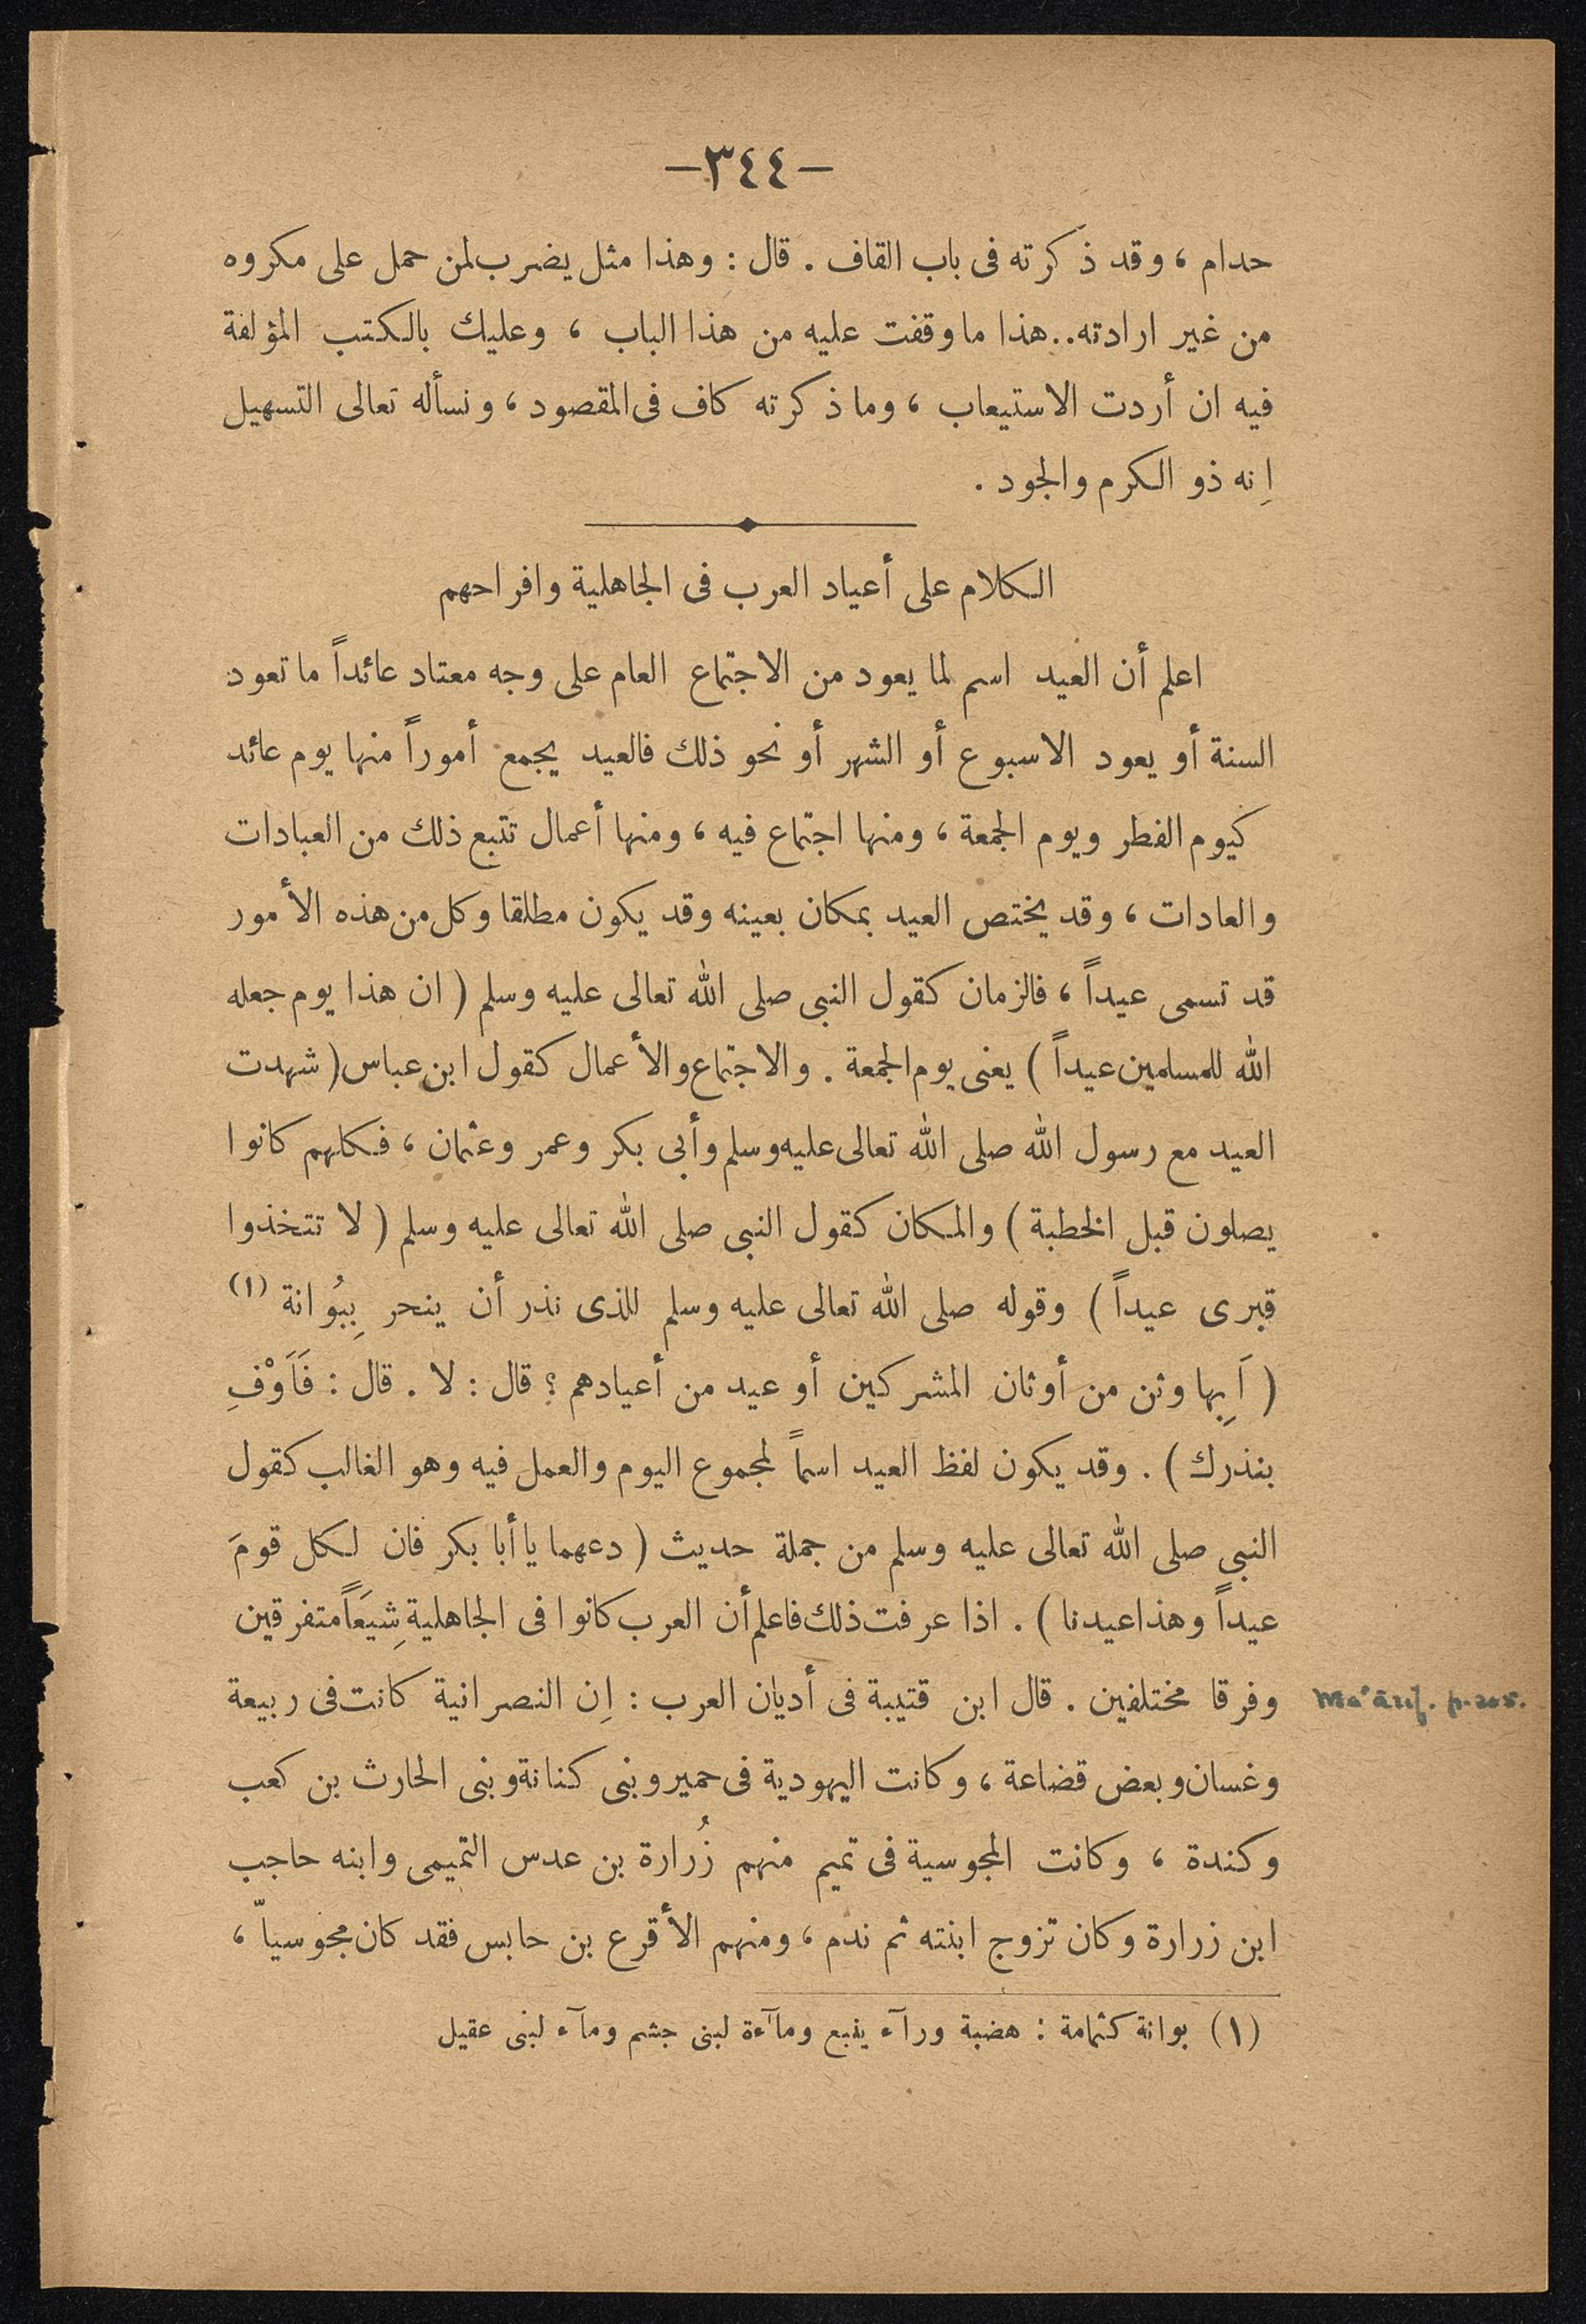 —٣٤٤—
حدام ، وقد ذكرته فى باب القاف . قال : وهذا مثل يضرب لمن حمل على مكروه
من غير ارادته.. هذا ما وقفت عليه من هذا الباب ، وعليك بالكتب المؤلفة
فيه ان أردت الاستيعاب ، وما ذكرته كاف فى المقصود ، ونسأله تعالى التسهيل
إنه ذو الكرم والجود .
الكلام على أعياد العرب فى الجاهلية وافراحهم
اعلم أن العيد اسم لما يعود من الاجتماع العام على وجه معتاد عائداً ما تعود
السنة أو يعود الاسبوع أو الشهر أو نحو ذلك فالعيد يجمع أموراً منها يوم عائد
كيوم الفطر ويوم الجمعة ، ومنها اجتماع فيه ، ومنها أعمال تتبع ذلك من العبادات
والعادات ، وقد يختص العيد بمكان بعينه وقد يكون مطلقا وكل من هذه الأمور
قد تسمى عيداً ، فالزمان كقول النبى صلى الله تعالى عليه وسلم ( ان هذا يوم جعله
الله للمسلمين عيداً ) يعنى يوم الجمعة . والاجتماع والأعمال كقول ابن عباس ( شهدت
العيد مع رسول الله صلى الله تعالى عليه وسلم وأبى بكر وعمر وعثمان ، فكلهم كانوا
يصلون قبل الخطبة ) والمكان كقول النبى صلى الله تعالى عليه وسلم ( لا تتخذوا
قبرى عيداً ) وقوله صلى الله تعالى عليه وسلم للذى نذر أن ينحر بِبُوانة (١)
( اَبِها وثن من أوثان المشركين أو عيد من أعيادهم ؟ قال : لا . قال : فَاَوْفِ
بنذرك ) . وقد يكون لفظ العيد اسماً لمجموع اليوم والعمل فيه وهو الغالب كقول
النبى صلى الله تعالى عليه وسلم من جملة حديث ( دعهما يا أبا بكر فان لكل قومَ
عيداً وهذا عيدنا ) . اذا عرفت ذلك فاعلم أن العرب كانوا فى الجاهلية شِيَعَاً متفرقين
وفرقا مختلفين . قال ابن قتيبة فى أديان العرب : إن النصرانية كانت فى ربيعة
Ma'ārif. p. 205.
وغسان وبعض قضاعة ، وكانت اليهودية فى حمير وبنى كنانة وبنى الحارث بن كعب
وكندة ، وكانت المجوسية فى تميم منهم زُرارة بن عدس التميمى وابنه حاجب
ابن زرارة وكان تزوج ابنته ثم ندم ، ومنهم الأقرع بن حابس فقد كان مجوسياّ ،
(١) بوانة كثمامة : هضبة ورآء ينبع ومآءة لبنى جشم ومآء لبنى عقيل